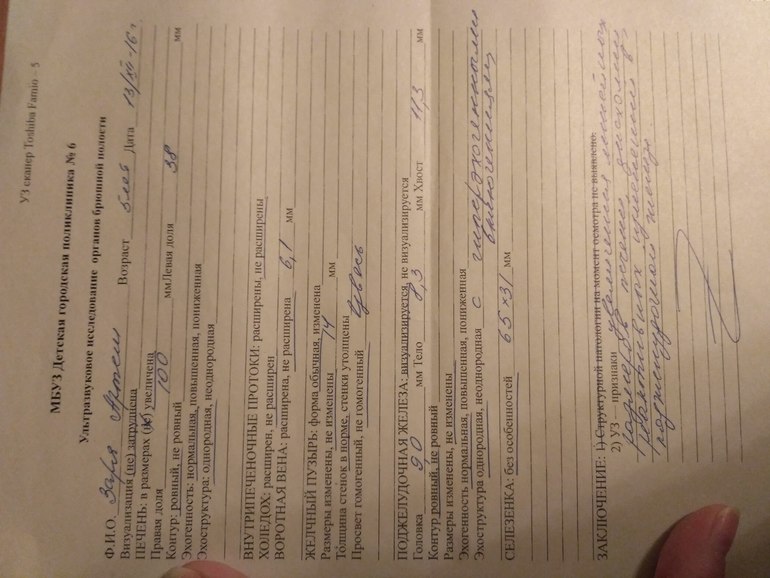 УЗ сканер Toshiba Famio – 5
МБУЗ Детская городская поликлиника № 6
Ультразвуковое исследование органов брюшной полости
Ф.И.О. Заря Артем Возраст 5 лет Дата 13/XII-16 г
Визуализация (не) затруднена
ПЕЧЕНЬ: в размерах (не) увеличена
Правая доля 100 мм Левая доля 38 мм
Контур: ровный, не ровный
Эхогенность: нормальная, повышенная, пониженная
Эхоструктура: однородная, неоднородная
ВНУТРИПЕЧЕНОЧНЫЕ ПРОТОКИ: расширены, не расширены
ХОЛЕДОХ: расширен, не расширен
ВОРОТНАЯ ВЕНА: расширена, не расширена 6,1 мм
ЖЕЛЧНЫЙ ПУЗЫРЬ: форма обычная, изменена
Размеры изменены, не изменены 14 мм
Толщина стенок в норме, стенки утолщены
Просвет гомогенный, не гомогенный взвесь
ПОДЖЕЛУДОЧНАЯ ЖЕЛЕЗА: визуализируется, не визуализируется
Головка мм Тело 8,3 мм Хвост 11,3 мм
Контур ровный, не ровный
Размеры изменены, не изменены
Эхогенность нормальная, повышенная, пониженная
Эхоструктура однородная, неоднородная с гиперэхогенными
включениями
СЕЛЕЗЕНКА: без особенностей 65×31 мм
ЗАКЛЮЧЕНИЕ: 1) Структурной патологии на момент осмотра не выявлено.
2) УЗ признаки увеличения линейных
размеров печени,
реактивных изменений в
поджелудочной железе